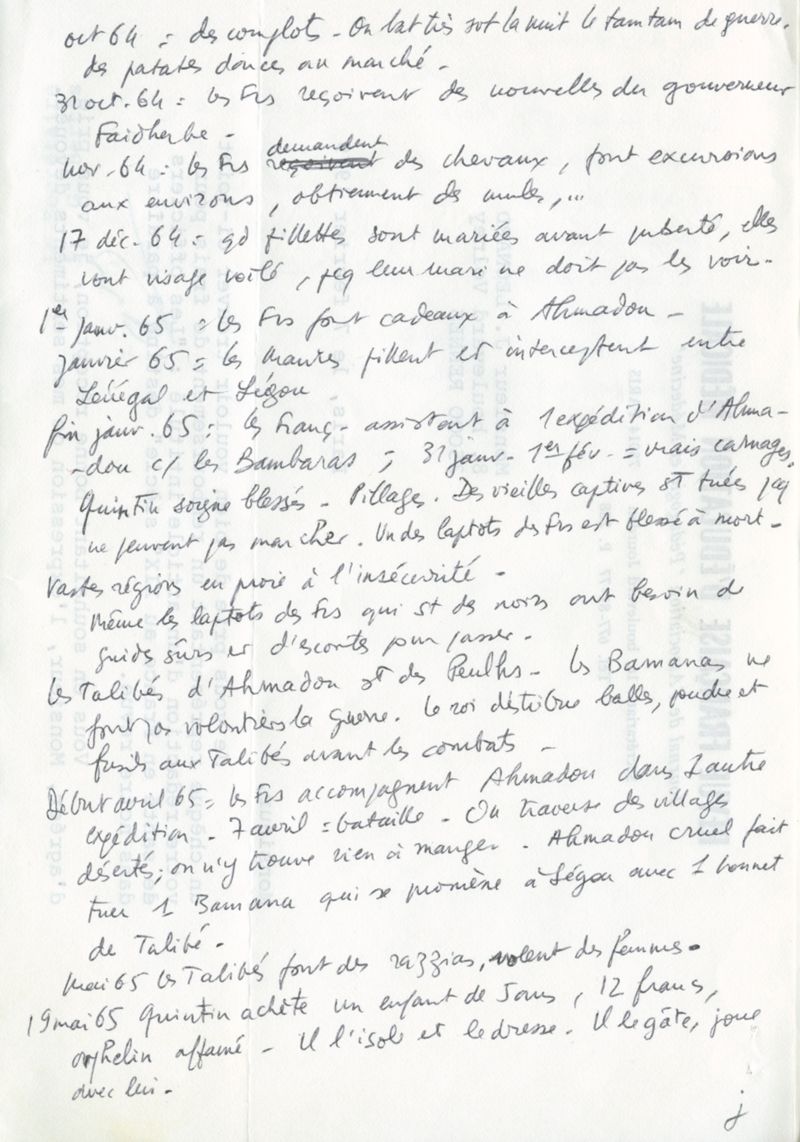 oct 64 = des complots - On bat très sot la nuit le tamtam de guerre.
des patates douces au marché -
31 oct. 64 = les Frs reçoivent des nouvelles du gouverneur
Faidherbe -
nov. 64 = les Frs demandent des chevaux, font excursions
aux environs, obtiennent des mules,...
17 déc. 64 = qd fillettes sont mariées avant puberté, elles
vont visage voilé, pcq leur mari ne doit pas les voir -
1er janv. 65 = les Frs font cadeaux à Ahmadou -
janvier 65 = les Maures pillent et interceptent entre
Sénégal et Ségou
fin janv. 65 = les Franç. assistent à 1 expédition d'Ahma-
-dou c/ les Bambaras ; 31 janv - 1er fév. = vrais carnages,
Quintin soigne blessés - Pillages. Des vieilles captives st tuées pcq
ne peuvent pas marcher. Un des laptots des Frs est blessé à mort -
Vastes régions en proie à l'insécurité -
Même les laptots des Frs qui st des noirs ont besoin de
guides sûrs et d'escortes pour passer -
les Talibés d'Ahmadou st des Peulhs - les Bamanas ne
font pas volontiers la guerre. Le roi distribue balles, poudre et
fusils aux Talibés avant les combats -
Début avril 65 = les Frs accompagnent Ahmadou dans 1 autre
expédition - 7 avril = bataille - On traverse des villages
désertés ; on n'y trouve rien à manger - Ahmadou cruel fait
tuer 1 Bamana qui se promène à Ségou avec 1 bonnet
de Talibé -
Mai 65 les Talibés font des razzias, volent des femmes -
19 mai 65 Quintin achète un enfant de 5 ans, 12 francs,
orphelin affamé - Il l'isole et le dresse. Il le gâte, joue
avec lui -
j